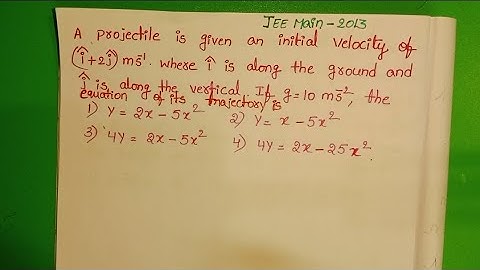 JEE Main - 2013
A projectile is given an initial velocity of
(î+2ĵ) ms⁻¹. where î is along the ground and
ĵ is along the vertical. If g=10 ms⁻², the
equation of its trajectory is
1) Y = 2x - 5x²
2) Y = x - 5x²
3) 4Y = 2x - 5x²
4) 4Y = 2x - 25x².